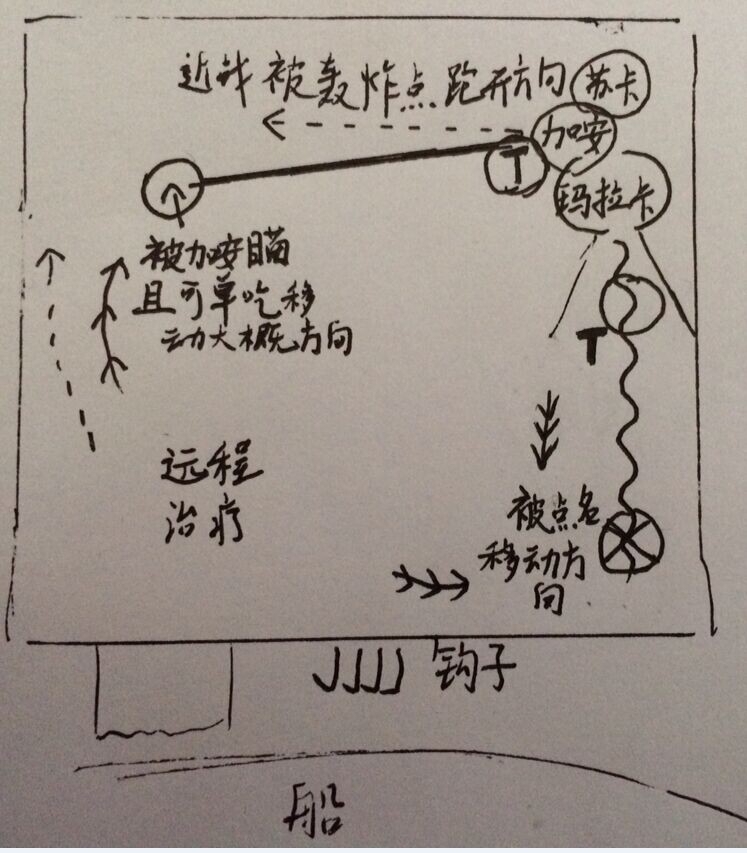 近战被轰炸点跑开方向
苏卡
加安
T
玛拉卡
被加安瞄
且可单吃移
动大概方向
T
远程
治疗
被点名
移动方
向
钩子
船